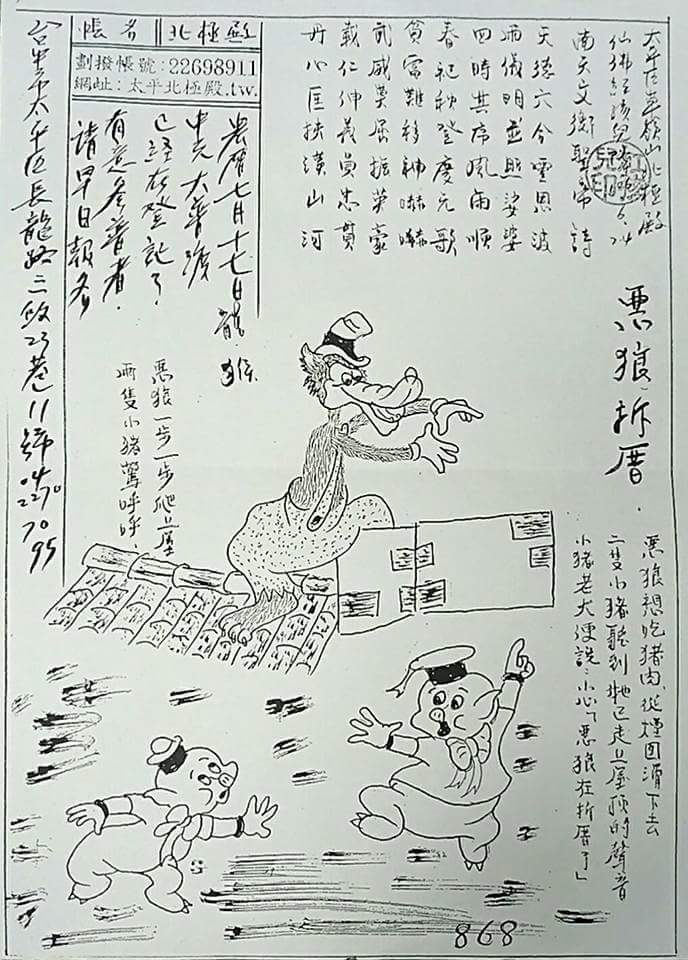 北極殿
南天文衡聖帝詩
天德六合 恩波
兩儀明並照娑婆
四時共序風雨順
春祀秋登慶元歌
貧富難移神嚇嚇
武威莫屈振英豪
載仁伸義員忠貫
丹心匡扶漢山河
帳名 北極殿
劃撥帳號:22698911
網址:太平北極殿.tw.
農曆七月十七日龍.猴
中元大普渡
已經在登記了.
有意參普者.
請早日報名
台中市太平區長龍路三段23巷11號 04 2270 7095
惡狼拆厝.
惡狼想吃猪肉,從煙囪滑下去
二隻小猪聽到牠已走上屋頂的聲音
小猪老大便説:小心「惡狼在拆厝了」
惡狼一步一步爬上屋
兩隻小猪驚呼呼
868